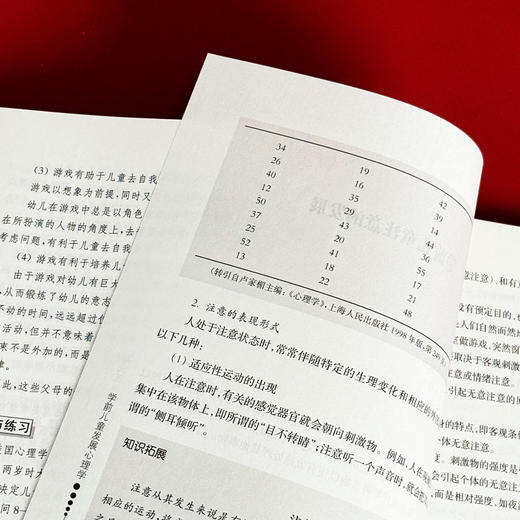 (3) 游戏有助于儿童去自我
游戏以想象为前提，同时又
幼儿在游戏中总是以角色
在所扮演的人物的角度上，去
考虑问题，有利于儿童去自我
(4) 游戏有利于培养儿
由于游戏对幼儿有巨大
，从而锻炼了幼儿的意志
不动的时间，远远超过
活动，但并不意味着
束不是外加的，而是
此，这些父母的
与练习
国心理学
两岁时大
决定儿
间8—
34 19 42
26 16 39
40 35 14
12 44 9
50 43
37 20 36
25 41 6
52 18 21
13 22 48
(转引自卢家楣主编：《心理学》，上海人民出版社1998年版，第249页
2. 注意的表现形式
人处于注意状态时，常常伴随特定的生理变化和相应的
以下几种：
(1) 适应性运动的出现
人在注意时，有关的感觉器官就会朝向刺激物。例如，人在
集中在该物体上，即所谓的“目不转睛”；注意听一个声音时，就会
谓的“侧耳倾听”。
知识拓展
注意从其发生来说是有
相应的运动，
学前儿童发展心理学
意注意）.和有
没有预定目的，
人们自然而然
室做游戏，突然窗
取决于客观刺激
注意或情绪注意。
引起无意注意的原
身的特点，即客观条
体无意注意。
刺激物的强度是
会引起个体的无意注
，而是相对强度，如夜